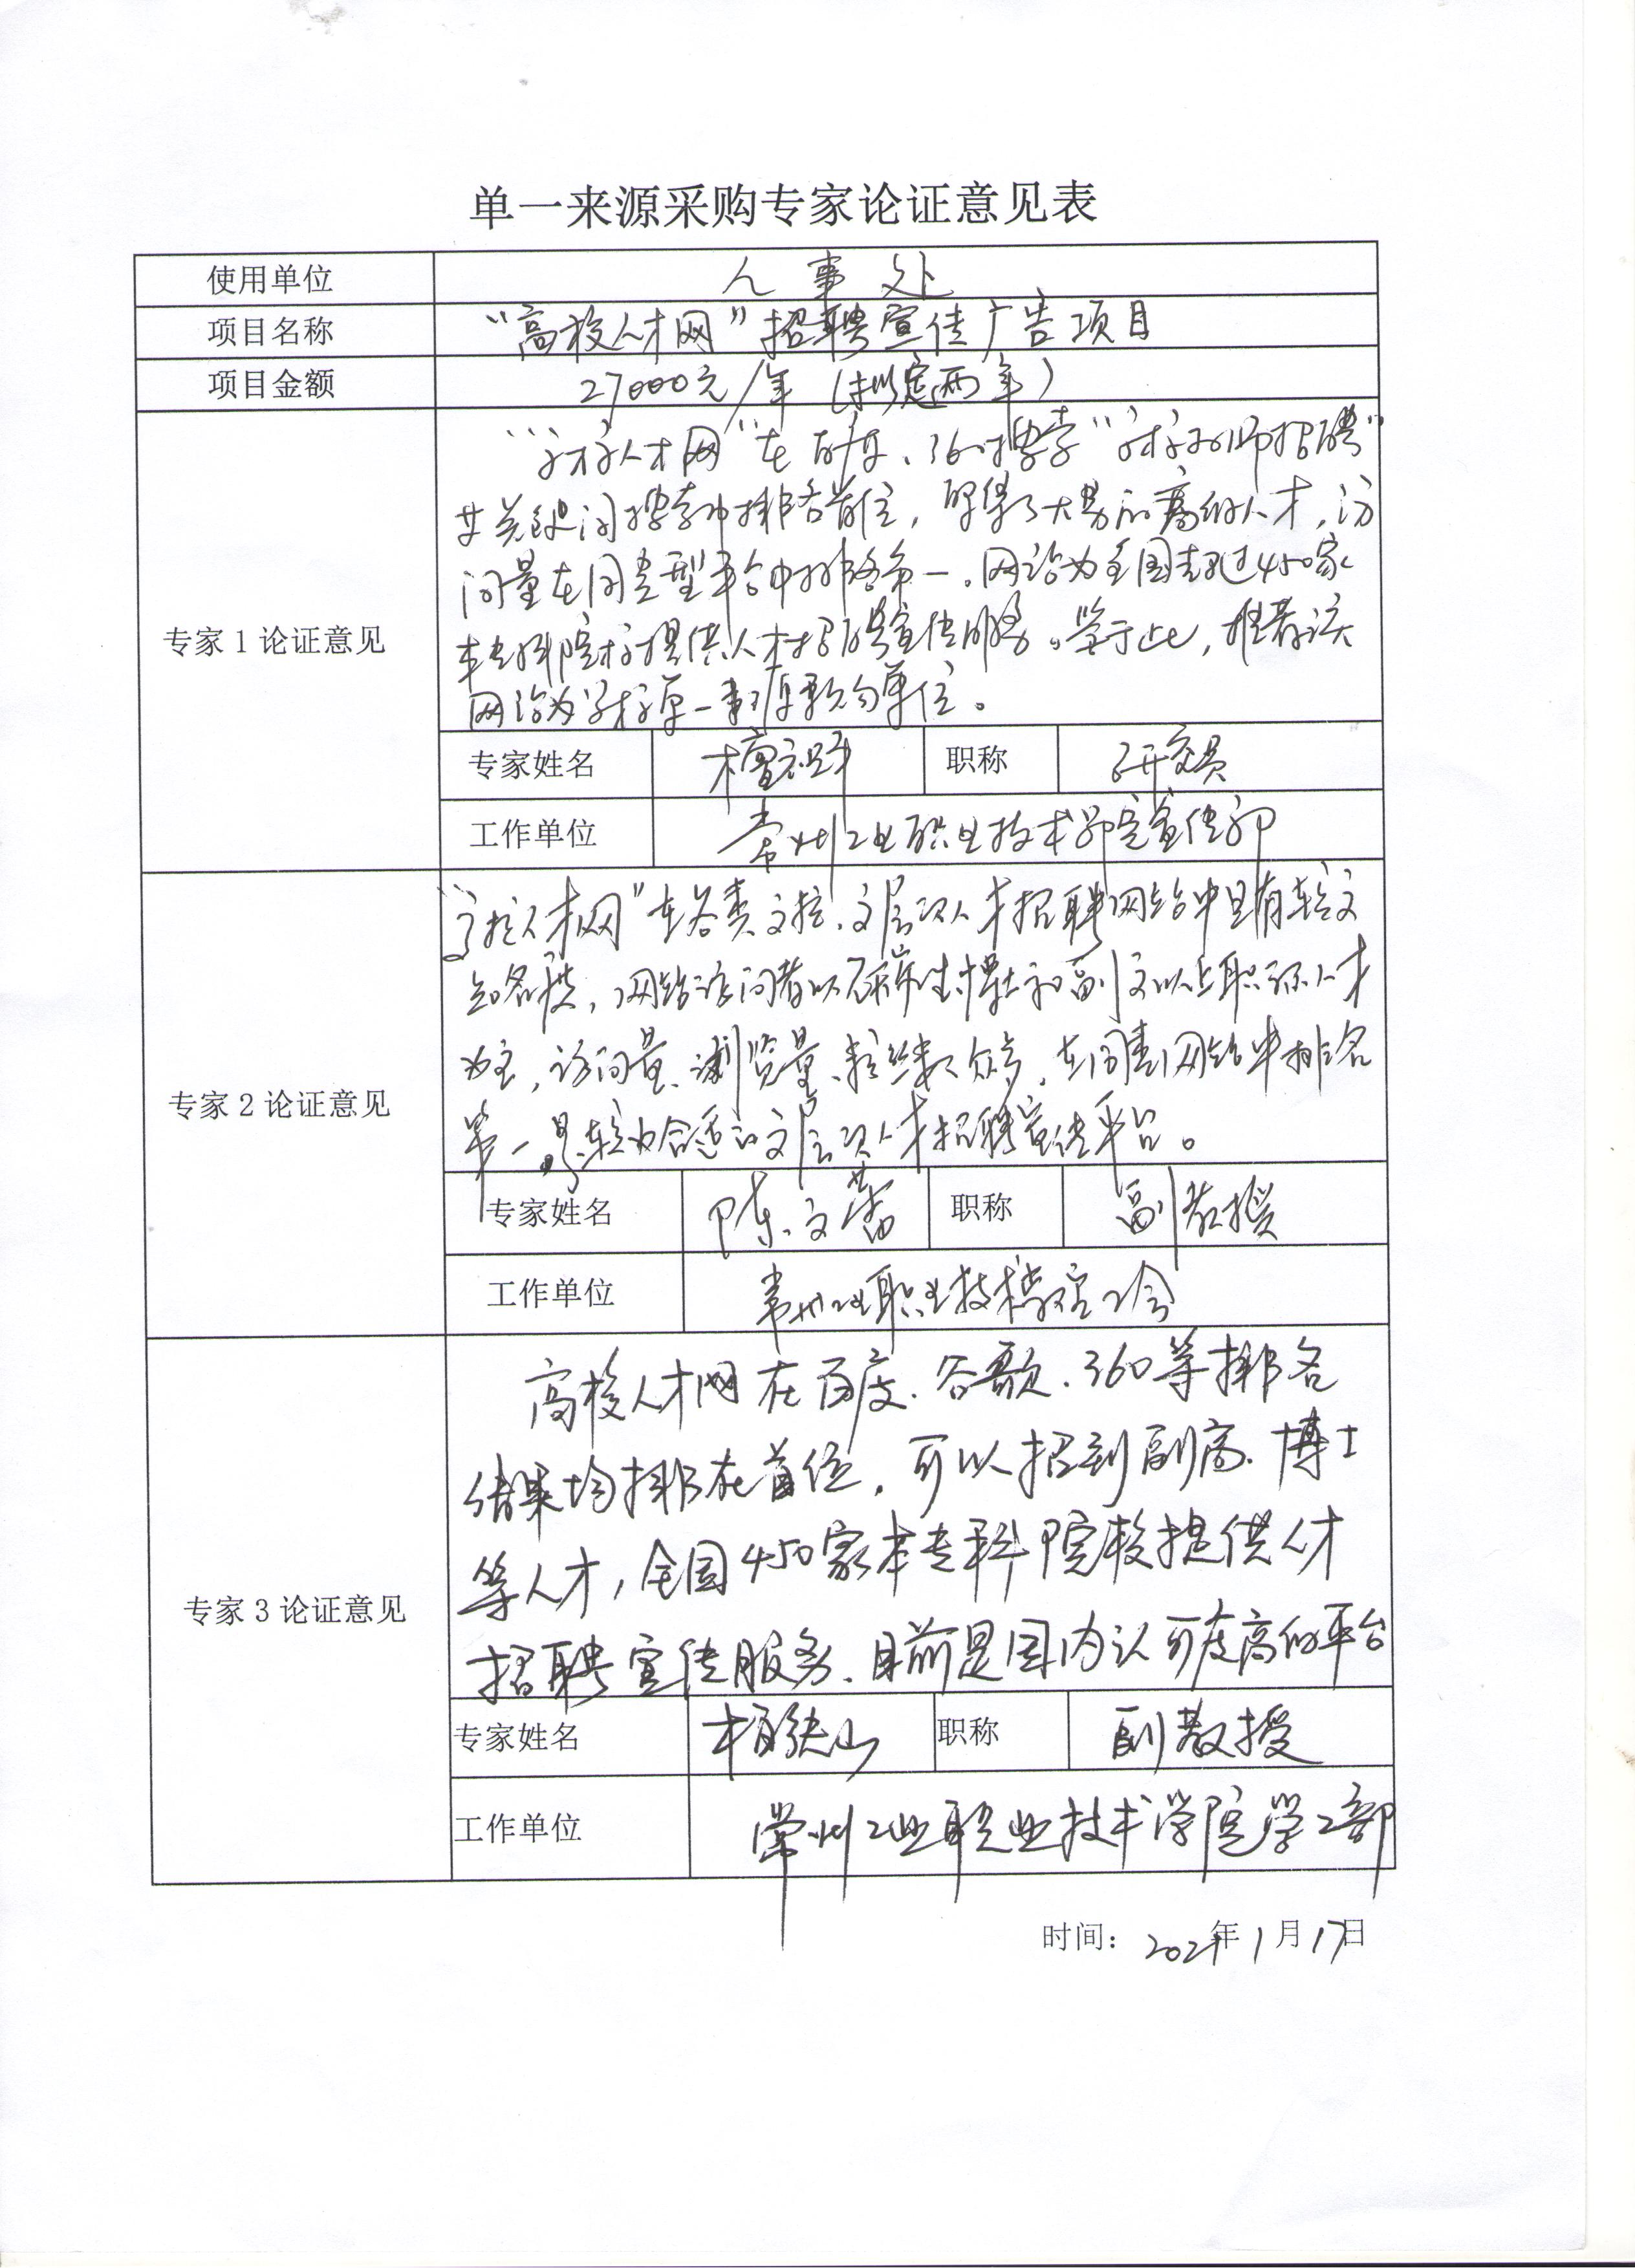 单一来源采购专家论证意见表
使用单位 人事处
项目名称 "高校人才网"招聘宣传广告项目
项目金额 27000元/年(拟定两年)
专家1论证意见
"高校人才网"在百度、360搜索"高校教师招聘"
等关键词搜索中排名首位,聚集了大量的高级人才,访
问量在同类型平台中排名第一。网站为全国超过450家
本专科院校提供人才招聘宣传服务。鉴于此,推荐该
网站为学校单一来源采购单位。
专家姓名 职称 研究员
工作单位 常州工业职业技术学院宣传部
专家2论证意见
"高校人才网"在各类高校、高层次人才招聘网站中具有较高
知名度,网站访问者以研究生博士和副高以上职称人才
为主,访问量、浏览量、粉丝数众多,在同类网站中排名
第一,是较为合适的高层次人才招聘宣传平台。
专家姓名 陈文蕾 职称 副教授
工作单位 常州工业职业技术学院工会
专家3论证意见
高校人才网在百度、谷歌、360等排名
结果均排在首位,可以招到副高、博士
等人才,全国450家本专科院校提供人才
招聘宣传服务、目前是国内认可度高的平台
专家姓名 职称 副教授
工作单位 常州工业职业技术学院学工部
时间: 2021年1月17日